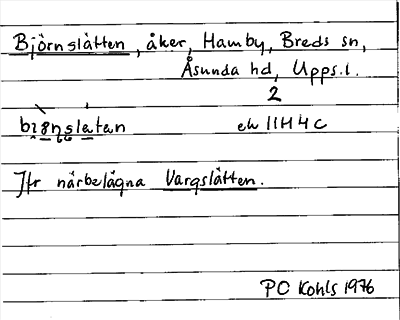 Björnslåtten, åker, Hamby, Breds sn,
Åsunda hd, Upps.l.
2
bıɵnslatan ek 11H4c
Jfr närbelägna Vargslåtten.
PO Kohls 1976